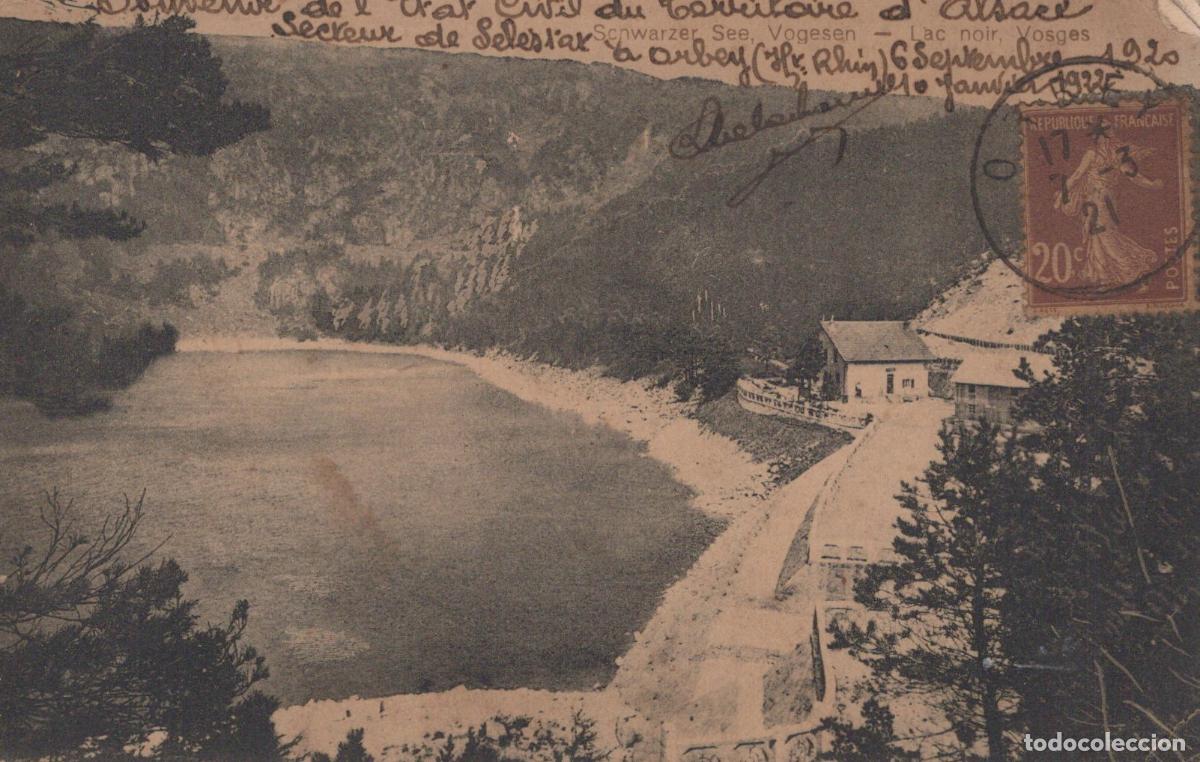 Souvenir de l'Etat Civil du Territoire d'Alsace
Schwarzer See, Vogesen – Lac noir, Vosges
Secteur de Selestat
à Orbey (Ht. Rhin) 6 Septembre 1920
10 Janvier 1922
REPUBLIQUE FRANÇAISE
17
7 - 3
21
O
20c
POSTES
todocoleccion